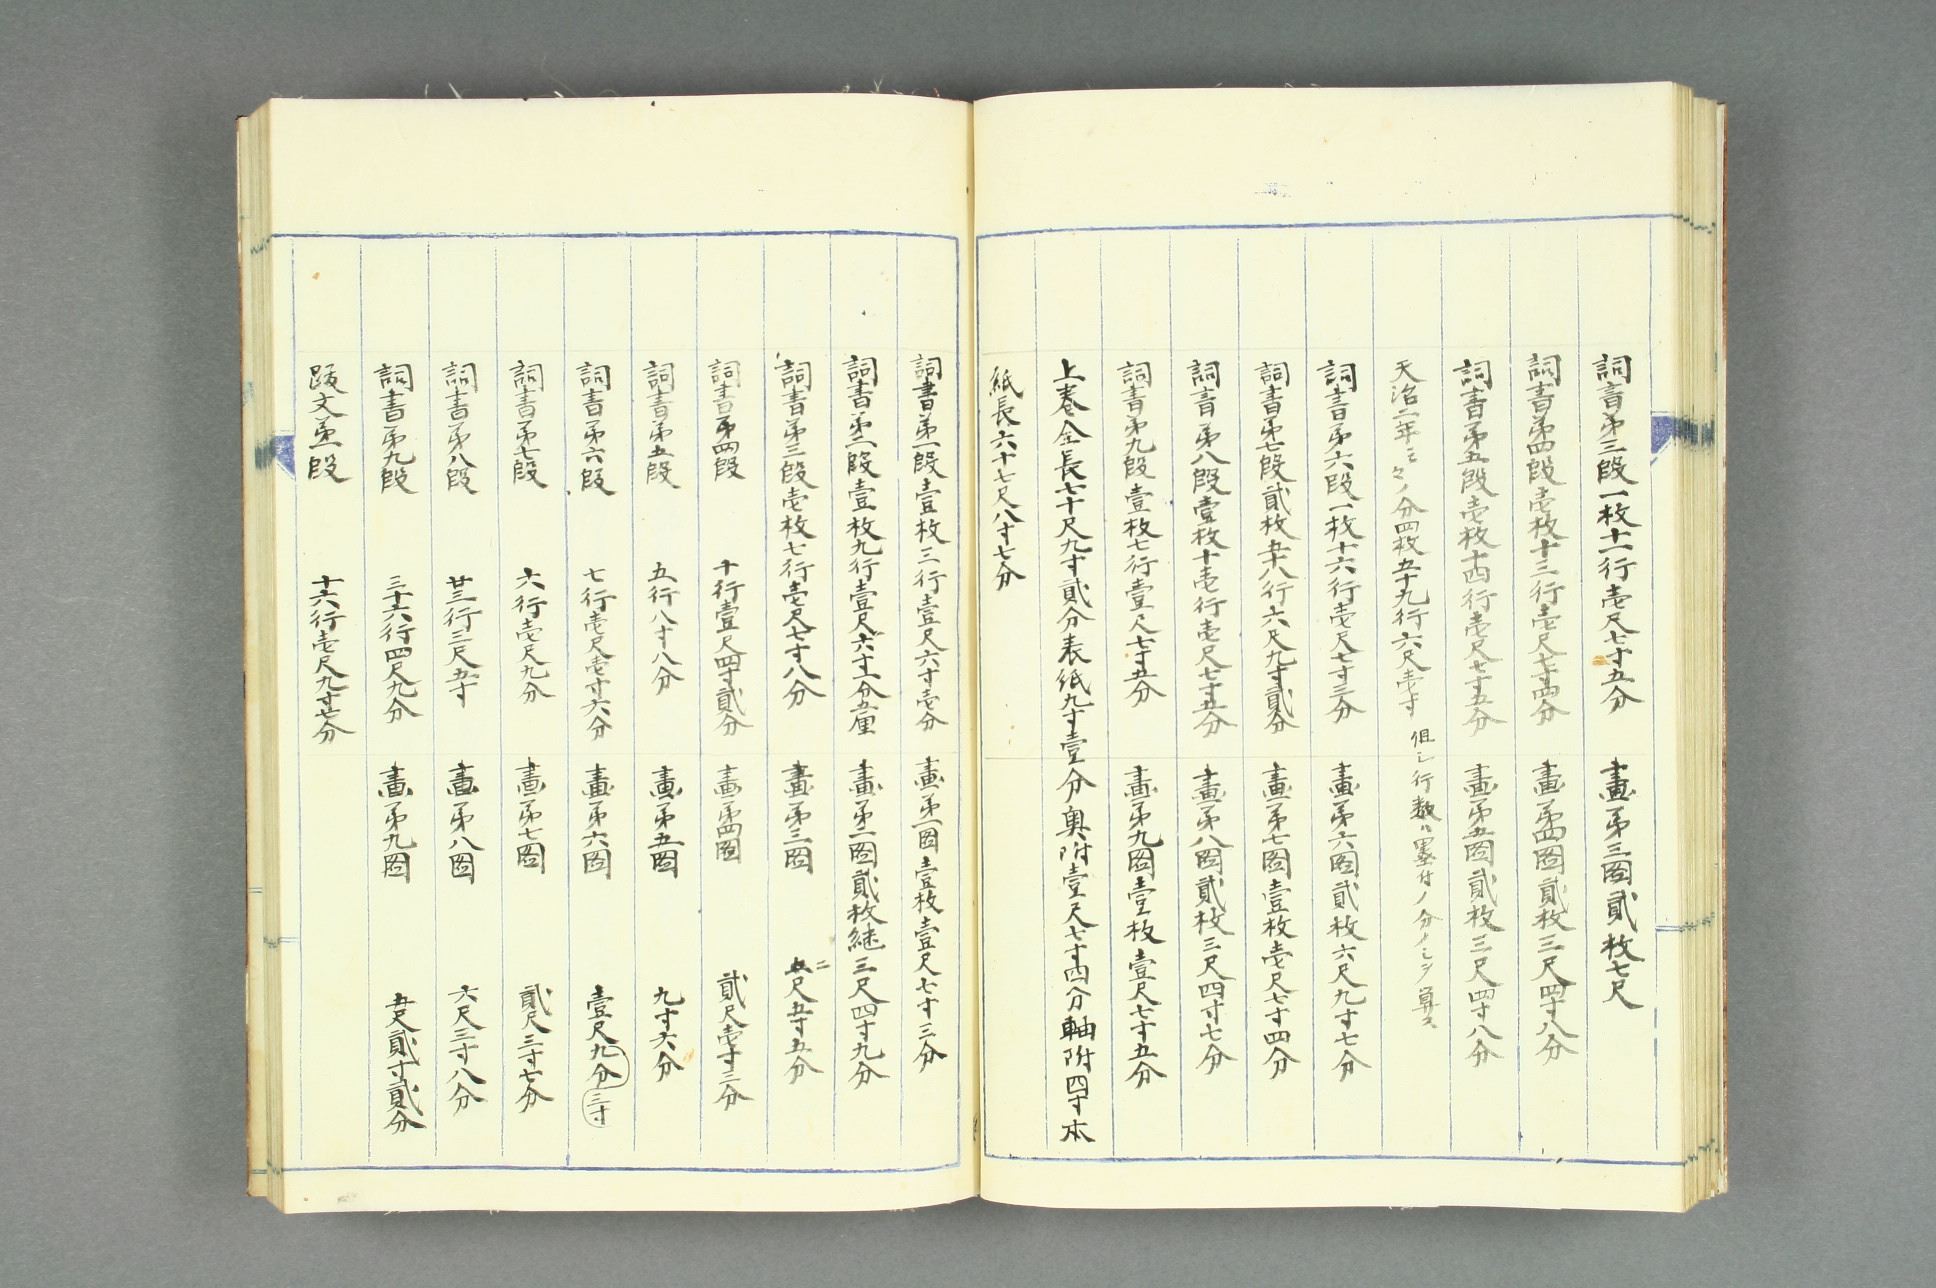 詞書第三段一枚十一行壱尺七寸五分　畫第三圖貳枚七尺
詞書第四段壱枚十三行壱尺七寸四分　畫第四圖貳枚三尺四寸八分
詞書第五段壱枚十四行壱尺七寸五分　畫第五圖貳枚三尺四寸八分
天治二年云々ノ分四枚五十九行六尺壱寸　但シ行数ハ墨付ノ分ノミヲ算ス
詞書第六段一枚十六行壱尺七寸三分　畫第六圖貳枚六尺九寸七分
詞書第七段貳枚五十八行六尺九寸貳分　畫第七圖壹枚壱尺七寸四分
詞書第八段壹枚十壱行壱尺七寸五分　畫第八圖貳枚三尺四寸七分
詞書第九段壹枚七行壹尺七寸五分　畫第九圖壹枚壹尺七寸五分
上巻全長七十尺九寸貳分表紙九寸壹分奥附壹尺七寸四分軸附四寸本
紙長六十七尺八寸七分
詞書第一段壹枚三行壹尺六寸壱分　畫第一圖壹枚壹尺七寸三分
詞書第二段壹枚九行壹尺六寸一分五厘　畫第二圖貳枚継三尺四寸九分
詞書第三段壱枚七行壱尺七寸八分　畫第三圖　二尺五寸五分
詞書第四段　十行壹尺四寸貳分　畫第四圖　貳尺壱寸三分
詞書第五段　五行八寸八分　畫第五圖　九寸六分
詞書第六段　七行壱尺壱寸六分　畫第六圖　壹尺九分三寸
詞書第七段　六行壱尺九分　畫第七圖　貳尺三寸七分
詞書第八段　廿三行三尺五寸　畫第八圖　六尺三寸八分
詞書第九段　三十六行四尺九分　畫第九圖　五尺貳寸貳分
跋文第一段　十六行壱尺九寸七分